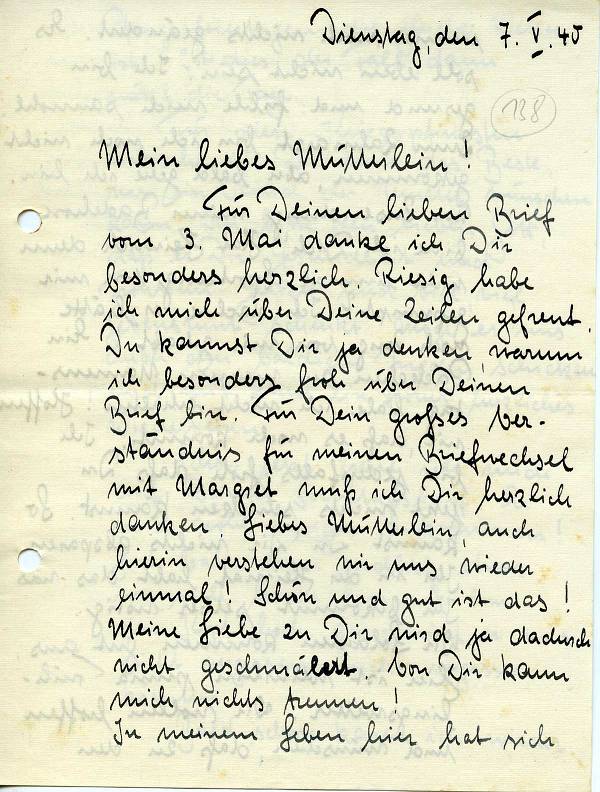 Dienstag, den 7. V. 40
138
Mein liebes Mütterlein!
Für Deinen lieben Brief
vom 3. Mai danke ich Dir
besonders herzlich. Riesig habe
ich mich über Deine Zeilen gefreut.
Du kannst Dir ja denken, warum
ich besonders froh über Deinen
Brief bin. Für Dein großes Ver-
ständnis für meinen Briefwechsel
mit Margret muß ich Dir herzlich
danken. Liebes Mütterlein, auch
hierin verstehen wir uns wieder
einmal! Schön und gut ist das!
Meine Liebe zu Dir wird ja dadurch
nicht geschmälert. Von Dir kann
mich nichts trennen!
In meinem Leben hier hat sich